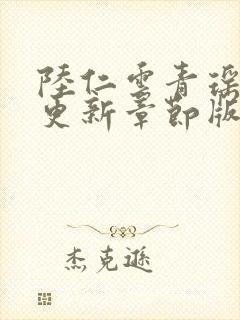 陸仁雲青瑤
更新章節版
杰克遜